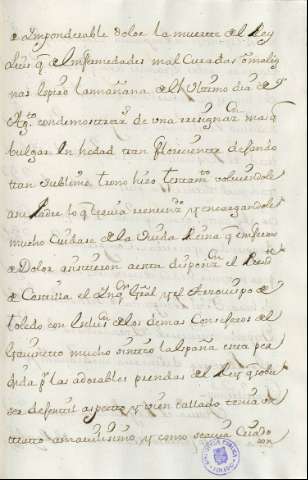 e Imponderable dolor la muerte del Rey
Luis q̃ de enfermedades mal Curadas o mali
gnas espiro la mañana del Ultimo dia de
Ag.to con demostrac.n de una resignaz.n mas q̃
bulgar en hedad tan floreciente dejando
tran sublime trono hizo testam.to volviendole
a su Padre lo q̃ tenia renunc.do y encargandole
mucho Cuidase de la Viuda Reina q̃ enferma
de Dolor asistieron a esta dispon.n el Presi.te
de Castilla el Inq.or Gral y el Arzobispo de
Toledo con los demas Consejeros del
Gavinetto mucho sintio la España esta per
dida p.r las adorables prendas del Rey q̃ sobre
ser de gentil aspecto y vien tallado tenia un
tratto amavilisimo, y como seguia
con